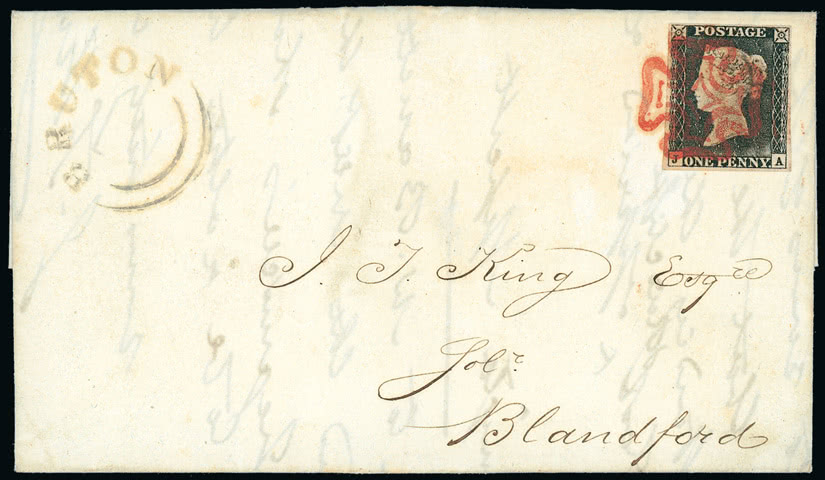 BRUTON
POSTAGE
J ONE PENNY A
J. J. King Esqre
Solr
Blandford